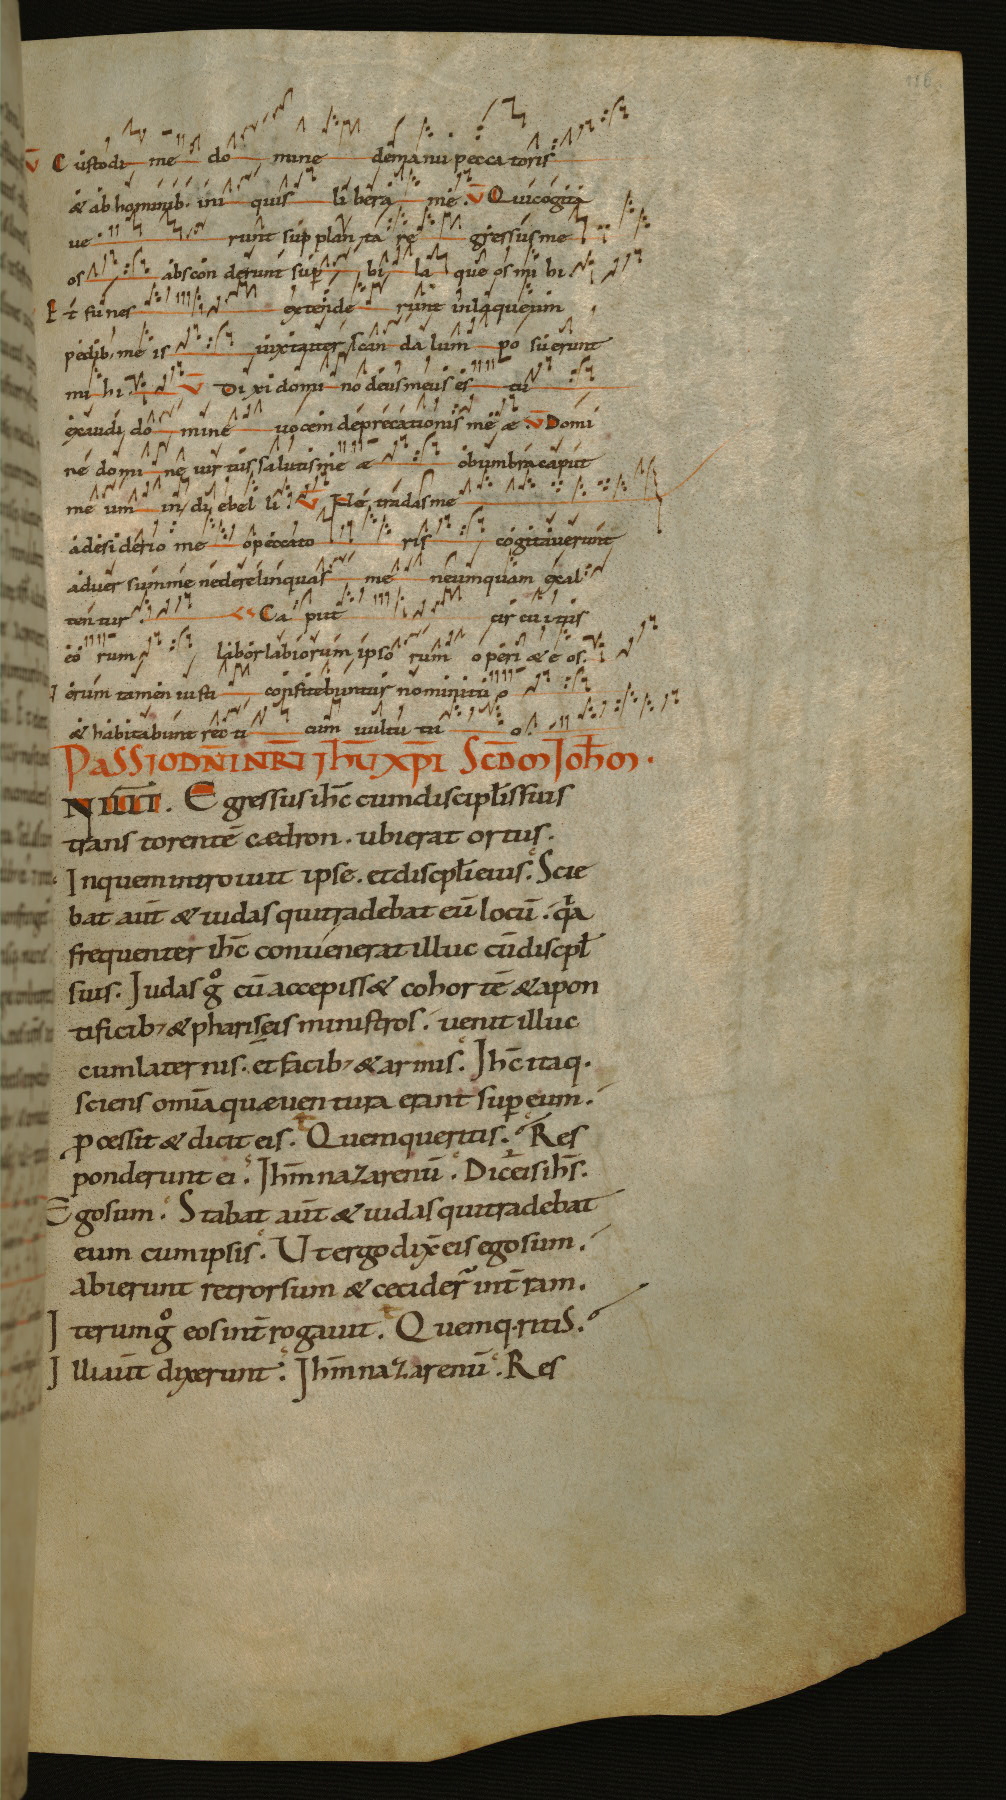 V̄ Custodi me domine de manu peccatoris
& ab hominib· iniquis libera me. V̄ Qui cogita
ue runt supplantare gressus me
os absconderunt sup̱bi laqueos mihi.
Et funes extenderunt in laqueum
pedib; meis iuxta iter scandalum posuerunt
mihi. V̄ Dixi domino deus meus es tu
exaudi domine uocem deprecationis meæ. V̄ Domi
ne domine uirtus salutis meæ obumbra caput
meum in di e bel li. V̄ Ne tradas me
a desiderio meo peccatoris cogitauerunt
aduersum me ne derelinquas me ne umquam exal
tentur. Caput circuitus
eorum labor labiorum ipsorum operi& eos.
Uerum tamen iusti confitebuntur nomini tuo
& habitabunt recti cum uultu tuo.
PASSIO DN̄I NR̄I JHŪ XP̄I SCD̄M JOHM̄.
N IIII. Egressus ihc̄ cum discipl̄is suis
trans torentē cædron. ubi erat ortus.
In quem introiuit ipse. et discpl̄i eius. Scie
bat aūt & iudas qui tradebat eū locū. qa
frequenter ihc̄ convenerat illuc cū discpl̄
suis. Judas g̊ cū accepiss& cohortē & a pon
tificib; & phariseis ministros. uenit illuc
cum laternis. et facib; & armis. Jhc̄ itaq.
sciens om̄ia quæ uentura erant sup̱ eum.
p̱cessit & dicit eis. Quem queritis. Res
ponderunt ei. Jhm̄ nazarenū. Dic̄ eis ihs̄.
Ego sum. Stabat aūt & iudas qui tradebat
eum cum ipsis. Ut ergo dix̄ eis ego sum.
abierunt retrorsum & cecider̄ in t̄ram.
Iterum g̊ eos int̄rogauit. Quem q·ritis.
Illi aūt dixerunt. Jhm̄ nazarenū. Res